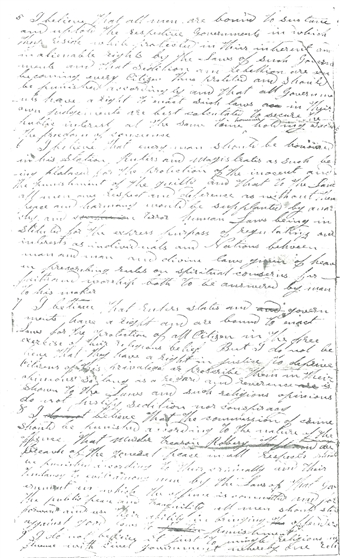 5 I believe that all men are bound to sustain
and uphold the respective Governments in which
they reside while protected in their inherent and
inalienable rights by the Laws of such Govern
ments and that sedition and rebellion are un
becoming every Citizen thus protected and should
be punished accordingly and that all Governments
have a right to enact such laws as in their
own judgements are best calculated to secure
public interest at the same time holding sacred
the freedom of conscience
6 I believe that every man should be honored
in his station, Rulers and magistrates as such be
ing placed for the protection of the innocent and
the punishment of the guilty and that to the Laws
all men owe respect and deference as without them
peace and harmony would be supplanted by anar
chy and terror human Laws being in
stituted for the express purpose of regulating our
interests as individuals and Nations between
man and man and divine laws given of heaven
in prescribing rules on spiritual concerns for
faith and worship both to be answered by man
to his maker
7 I believe that Rulers states and govern
ments have a right and are bound to enact
laws for the protection of all Citizens in the free
exercise of their religious belief But I do not be
lieve that they have a right in justice to deprive
Citizens of this privilege or proscribe them in their
opinions so long as a regard and reverence are
shown to the Laws and such religious opinions
do not justify sedition nor conspiracy
8 I believe that the commission of crime
should be punished according to the nature of the
offence That murder treason Robbery
breach of the general peace in all respects should
be punished according to their criminality and their
tendency to evil among men by the Laws of that gov
ernment in which the offence is committed and for
the public peace and tranquility all men should step
forward and use their ability in bringing offenders
against good Laws to punishment
9 I do not believe it just to mingle religious in
fluence with civil Government whereby one